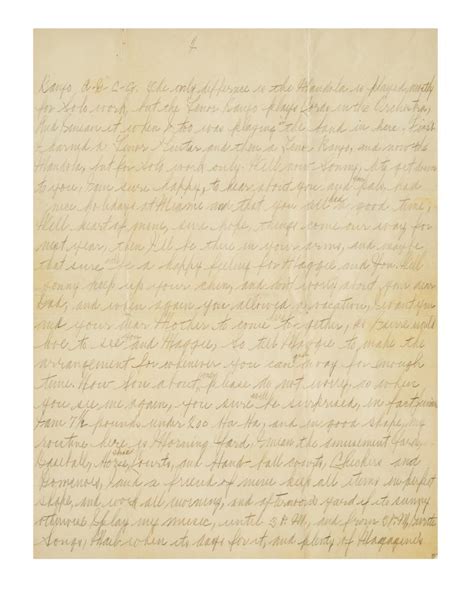 2
Banjo, A-D-C-G. The only differance is the Mandola is played mostly
for Solo work, but the Tenor Banjo plays Cords in the Orchestra,
And I mean it when I too was playing the band in here. First
I learned a Tenor Guitar and then a Tenor Banjo, and now the
Mandola, but for Solo work only. Well now Sonny, lets get down
to you, I am sure happy, to hear about you and had
nice holidays at Miami and that you all had a good time,
Well heart of mine, sure hope, things come our way for
next year, then I'll be there in your arms, and maybe
that sure will be a happy feeling for Maggie and you. Well
Sonny keep up your chin, and don't worry about your dear
Dad, and when again you allowed a vacation, I want you
and your dear Mother to come here together, as I sure would
love to see you and Maggie, So tell Maggie to make the
arrangement for whenever you can and way for enough
time. Now Son about me, please do not worry, so when
you see me again, you sure will be surprised, in fact
I am 7½ pounds under 200 Ha Ha, and in good shape, my
routine here is Morning Yard. I mean the amusement Yard,
Baseball, Horse shoe Courts, and Hand-Ball courts, Checkers and
Dominos, I and a friend of mine keep all items in perfect
shape, and work all morning, and afternoons Yard if its sunny
otherwise I play my music, until 3 P.M, and from
Songs, then when its days for it, and plenty of Magazines